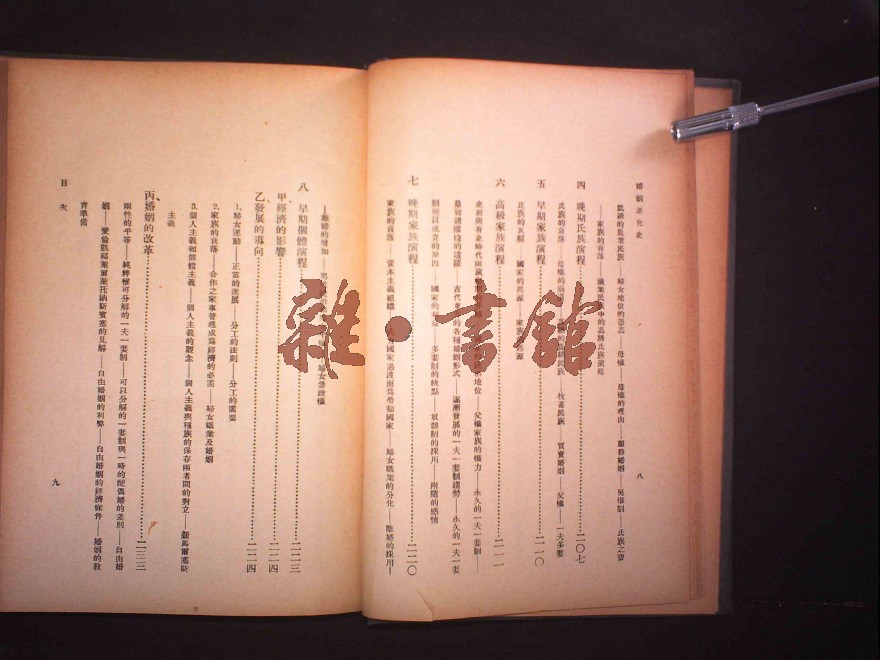 婚姻進化史
八
低級的農業民族 婦女地位的崇高 母權 母權的理由——服務婚姻——舅權制——氏族之寶
——家族的衰落——農業民族中的高級氏族演程
四 晚期氏族演程 二〇七
氏族的衰落——母權的 牧畜民族——買賣婚姻——父權——一夫多妻
五 早期家族演程 二一〇
氏族的瓦解 國家的起源——家族 源
六 高級家族演程 二一一
史前與有史時代兩 地位——父權家族的權力——永久的一夫一妻制——
最初諸階段的遺蹟——古代 的各種婚姻形式——逐漸發展的一夫一妻制趨勢——永久的一夫一妻
制所以成立的原因——國家的 ——多妻制的缺點——奴隸制的採用——附隨的感情
七 晚期家族演程 二二〇
家族的衰落——資本主義組織 國家過渡而為勞動國家——婦女職業的分化——離婚的採用——
——離婚的增加——男 ——婦女參政權
八 早期個體演程 二二三
甲、經濟的影響 二二四
乙、發展的導向 二二四
1. 婦女運動——正當的進展——分工的法則——分工的需要
2. 家族的衰落——合作之家事管理成為經濟的必需——婦女職業及婚姻
3. 個人主義和個體主義——個人主義的觀念——個人主義與種族的保存兩者間的對立——新馬爾塞斯
主義
丙、婚姻的改革 二三三
兩性的平等——純粹情可分解的一夫一妻制——可以分解的一妻制與一時的配偶婚的差別——自由婚
姻——愛倫凱福萊爾萊托納斯賓塞的見解——自由婚姻的利弊——自由婚姻的經濟條件——婚姻的教
育準備
目次
九
雜·書館